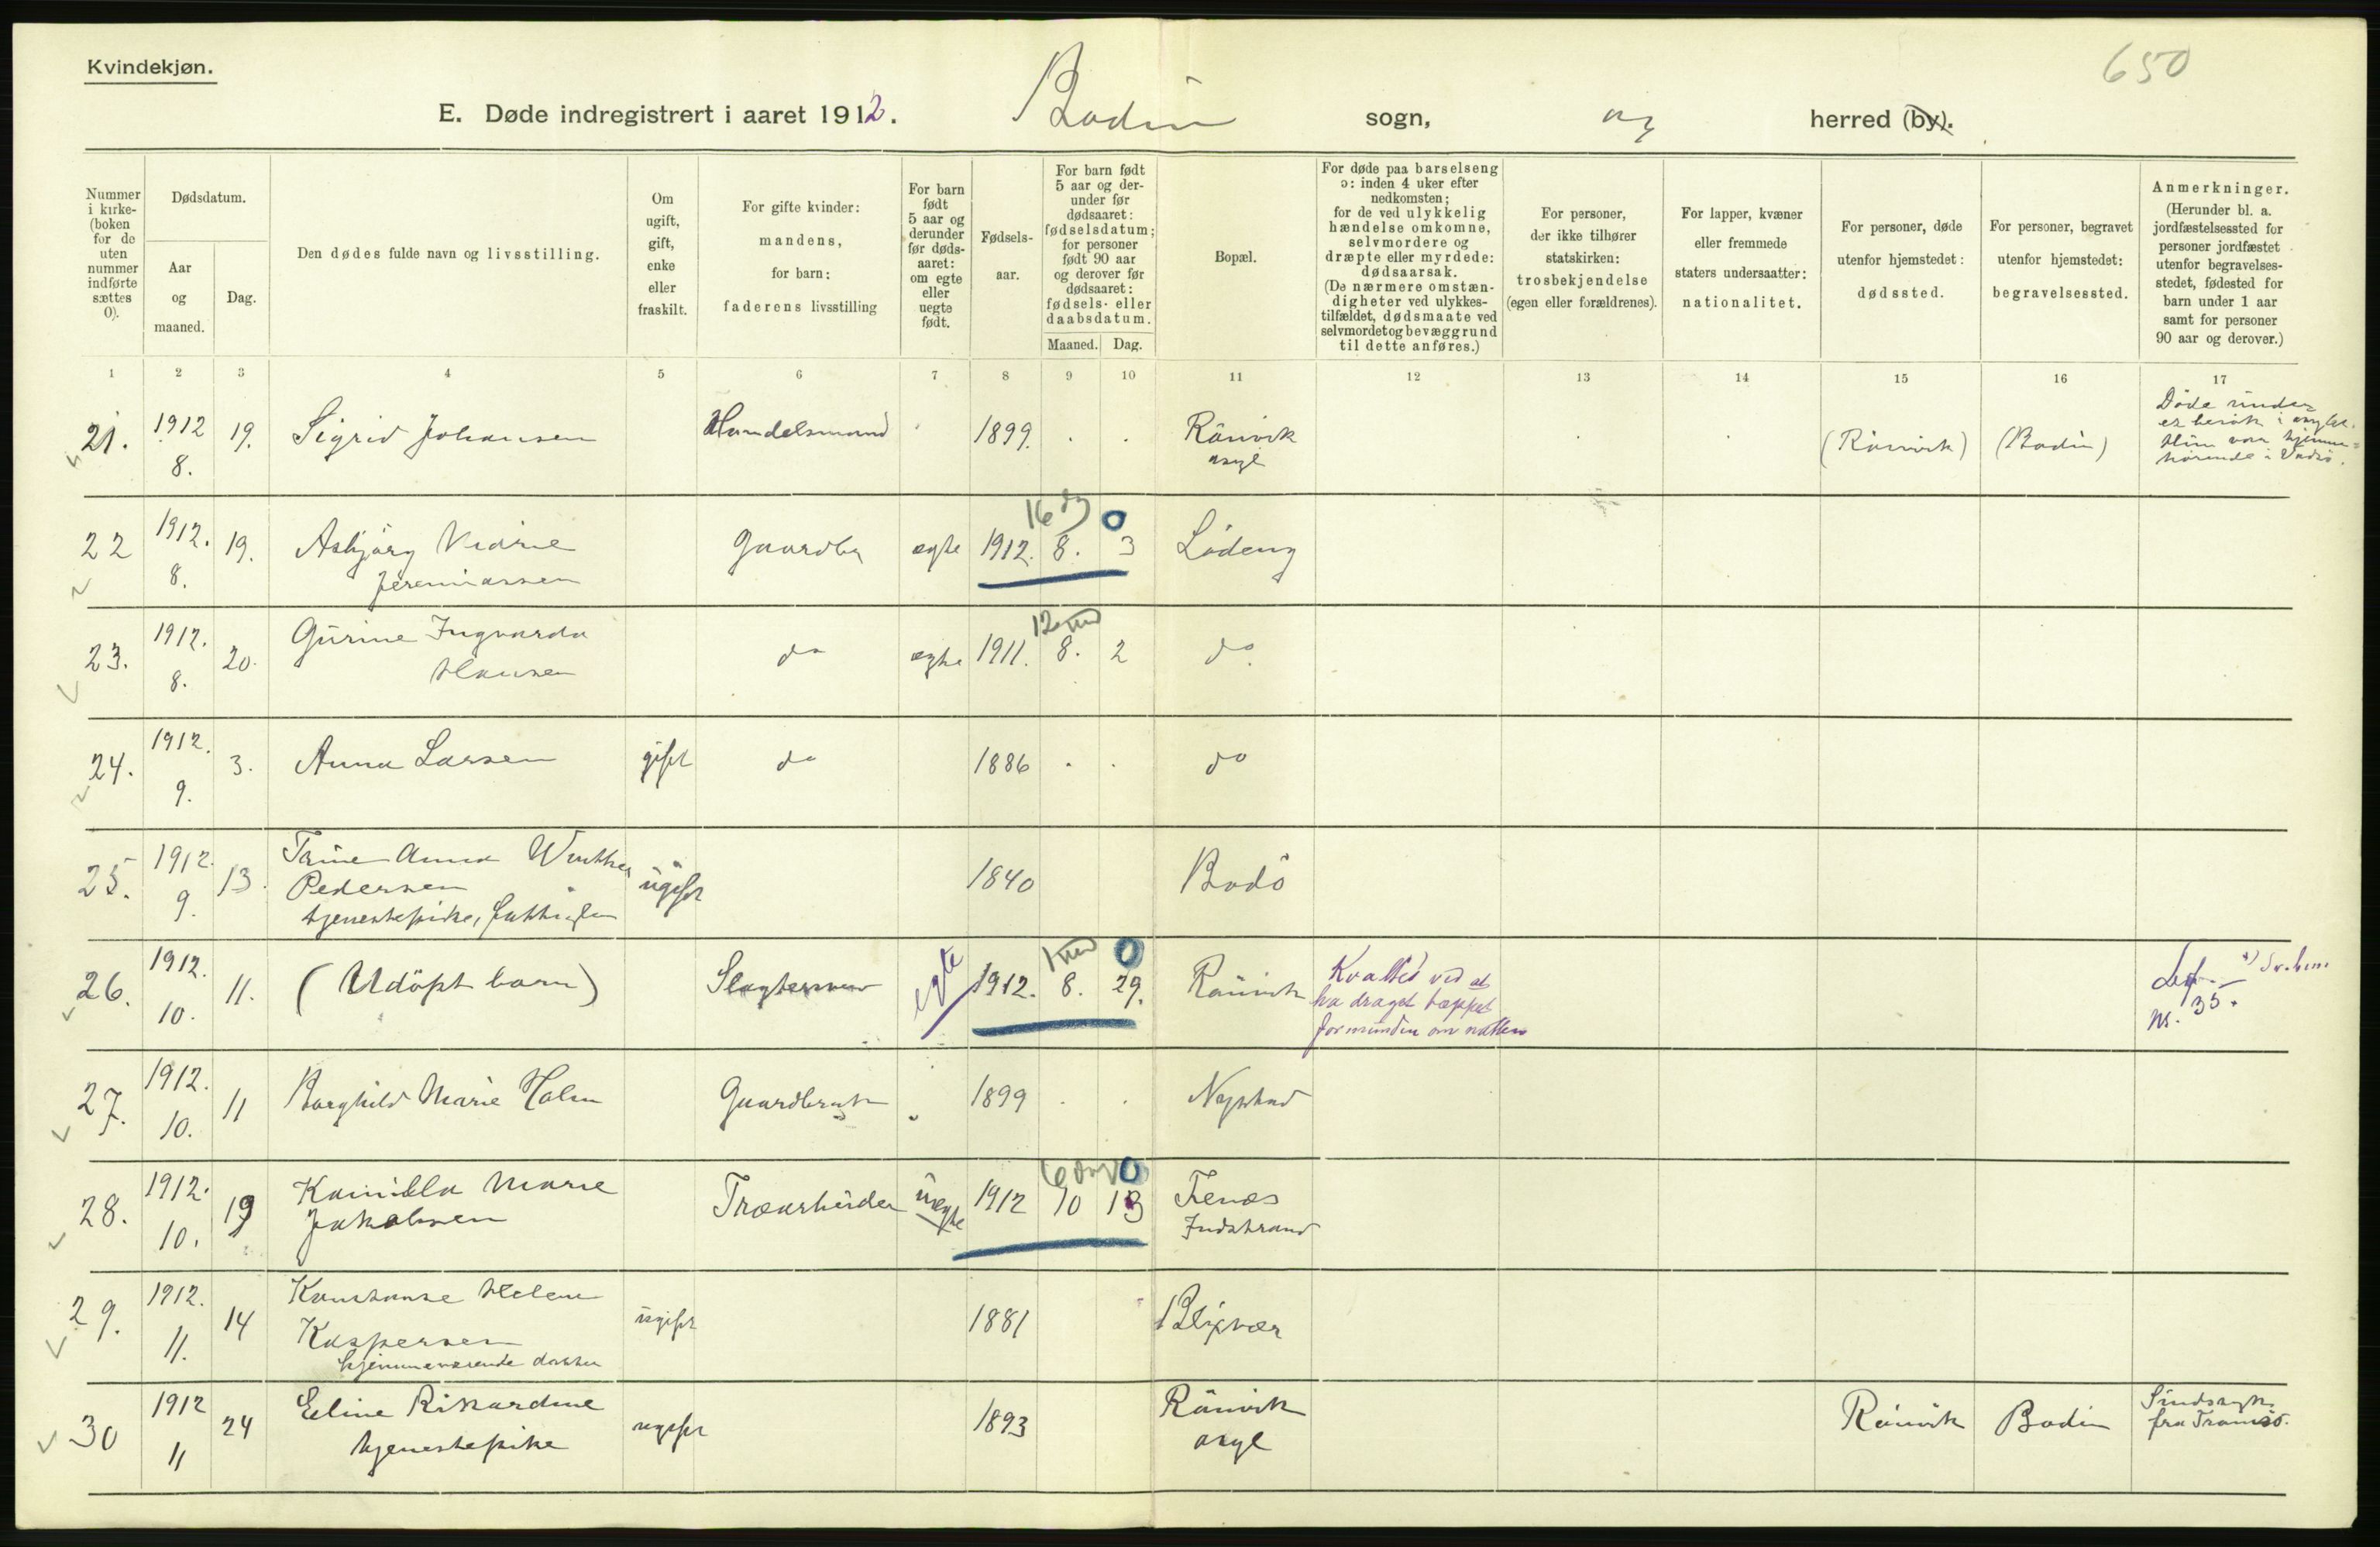 Kvindekjøn.
650
E. Døde indregistrert i aaret 1912.
Bodin sogn, og herred (by).
Nummer i kirkeboken (for de uten nummer indførte sættes 0).
Dødsdatum.
Aar og maaned.
Dag.
Den dødes fulde navn og livsstilling.
Om ugift, gift, enke eller fraskilt.
For gifte kvinder: mandens, for barn: faderens livsstilling
For barn født 5 aar og derunder før dødsaaret: om egte eller uegte født.
Fødselsaar.
For barn født 5 aar og derunder før dødsaaret: fødselsdatum; for personer født 90 aar og derover før dødsaaret: fødsels- eller daabsdatum.
Maaned. Dag.
Bopæl.
For døde paa barselseng ɔ: inden 4 uker efter nedkomsten; for de ved ulykkelig hændelse omkomne, selvmordere og dræpte eller myrdede: dødsaarsak. (De nærmere omstændigheter ved ulykkestilfældet, dødsmaate ved selvmordet og bevæggrund til dette anføres.)
For personer, der ikke tilhører statskirken: trosbekjendelse (egen eller forældrenes).
For lapper, kvæner eller fremmede staters undersaatter: nationalitet.
For personer, døde utenfor hjemstedet: dødssted.
For personer, begravet utenfor hjemstedet: begravelsessted.
Anmerkninger. (Herunder bl. a. jordfæstelsessted for personer jordfæstet utenfor begravelsesstedet, fødested for barn under 1 aar samt for personer 90 aar og derover.)
1 2 3 4 5 6 7 8 9 10 11 12 13 14 15 16 17
21. 1912 8. 19. Sigrid Johansen Handelsmand 1899. Rønvik asyl (Rønvik) (Bodin) Døde under et besøk i asylet. Hun var hjemmehørende i Vadsø.
22 1912. 8. 19. Asbjørg Marie Jeremiassen Gaardbr egte 1912. 8. 3 16 dg 0 Løding
23. 1912. 8. 20. Gurine Ingvarda Hansen do egte 1911. 8. 2 12 md do.
24. 1912. 9. 3. Anna Larsen gift do 1886 do
25. 1912. 9. 13. Trine Anna Winther Pedersen tjenestepike, fattiglem ugift 1840 Bodø
26. 1912. 10. 11. (Udøpt barn) Slagtersvend egte 1912. 8. 29. 1 md 0 Rønvik Kvalt ved at ha draget tæppet for munden om natten Nr. 35.
27. 1912. 10. 11 Borghild Marie Holm Gaardbruk 1899 Nystad
28. 1912. 10. 19 Kamilla Marie Jakobsen Træarbeider uegte 1912 10 13 6 dag 0 Tenæs Indstrand
29. 1912. 11. 14 Konstanse Helene Kaspersen hjemmeværende datter ugift 1881 Blixvær
30 1912 11 24 Eline Rikardine tjenestepike ugift 1893 Rønvik asyl Rønvik Bodin Sindssyk fra Tromsø.